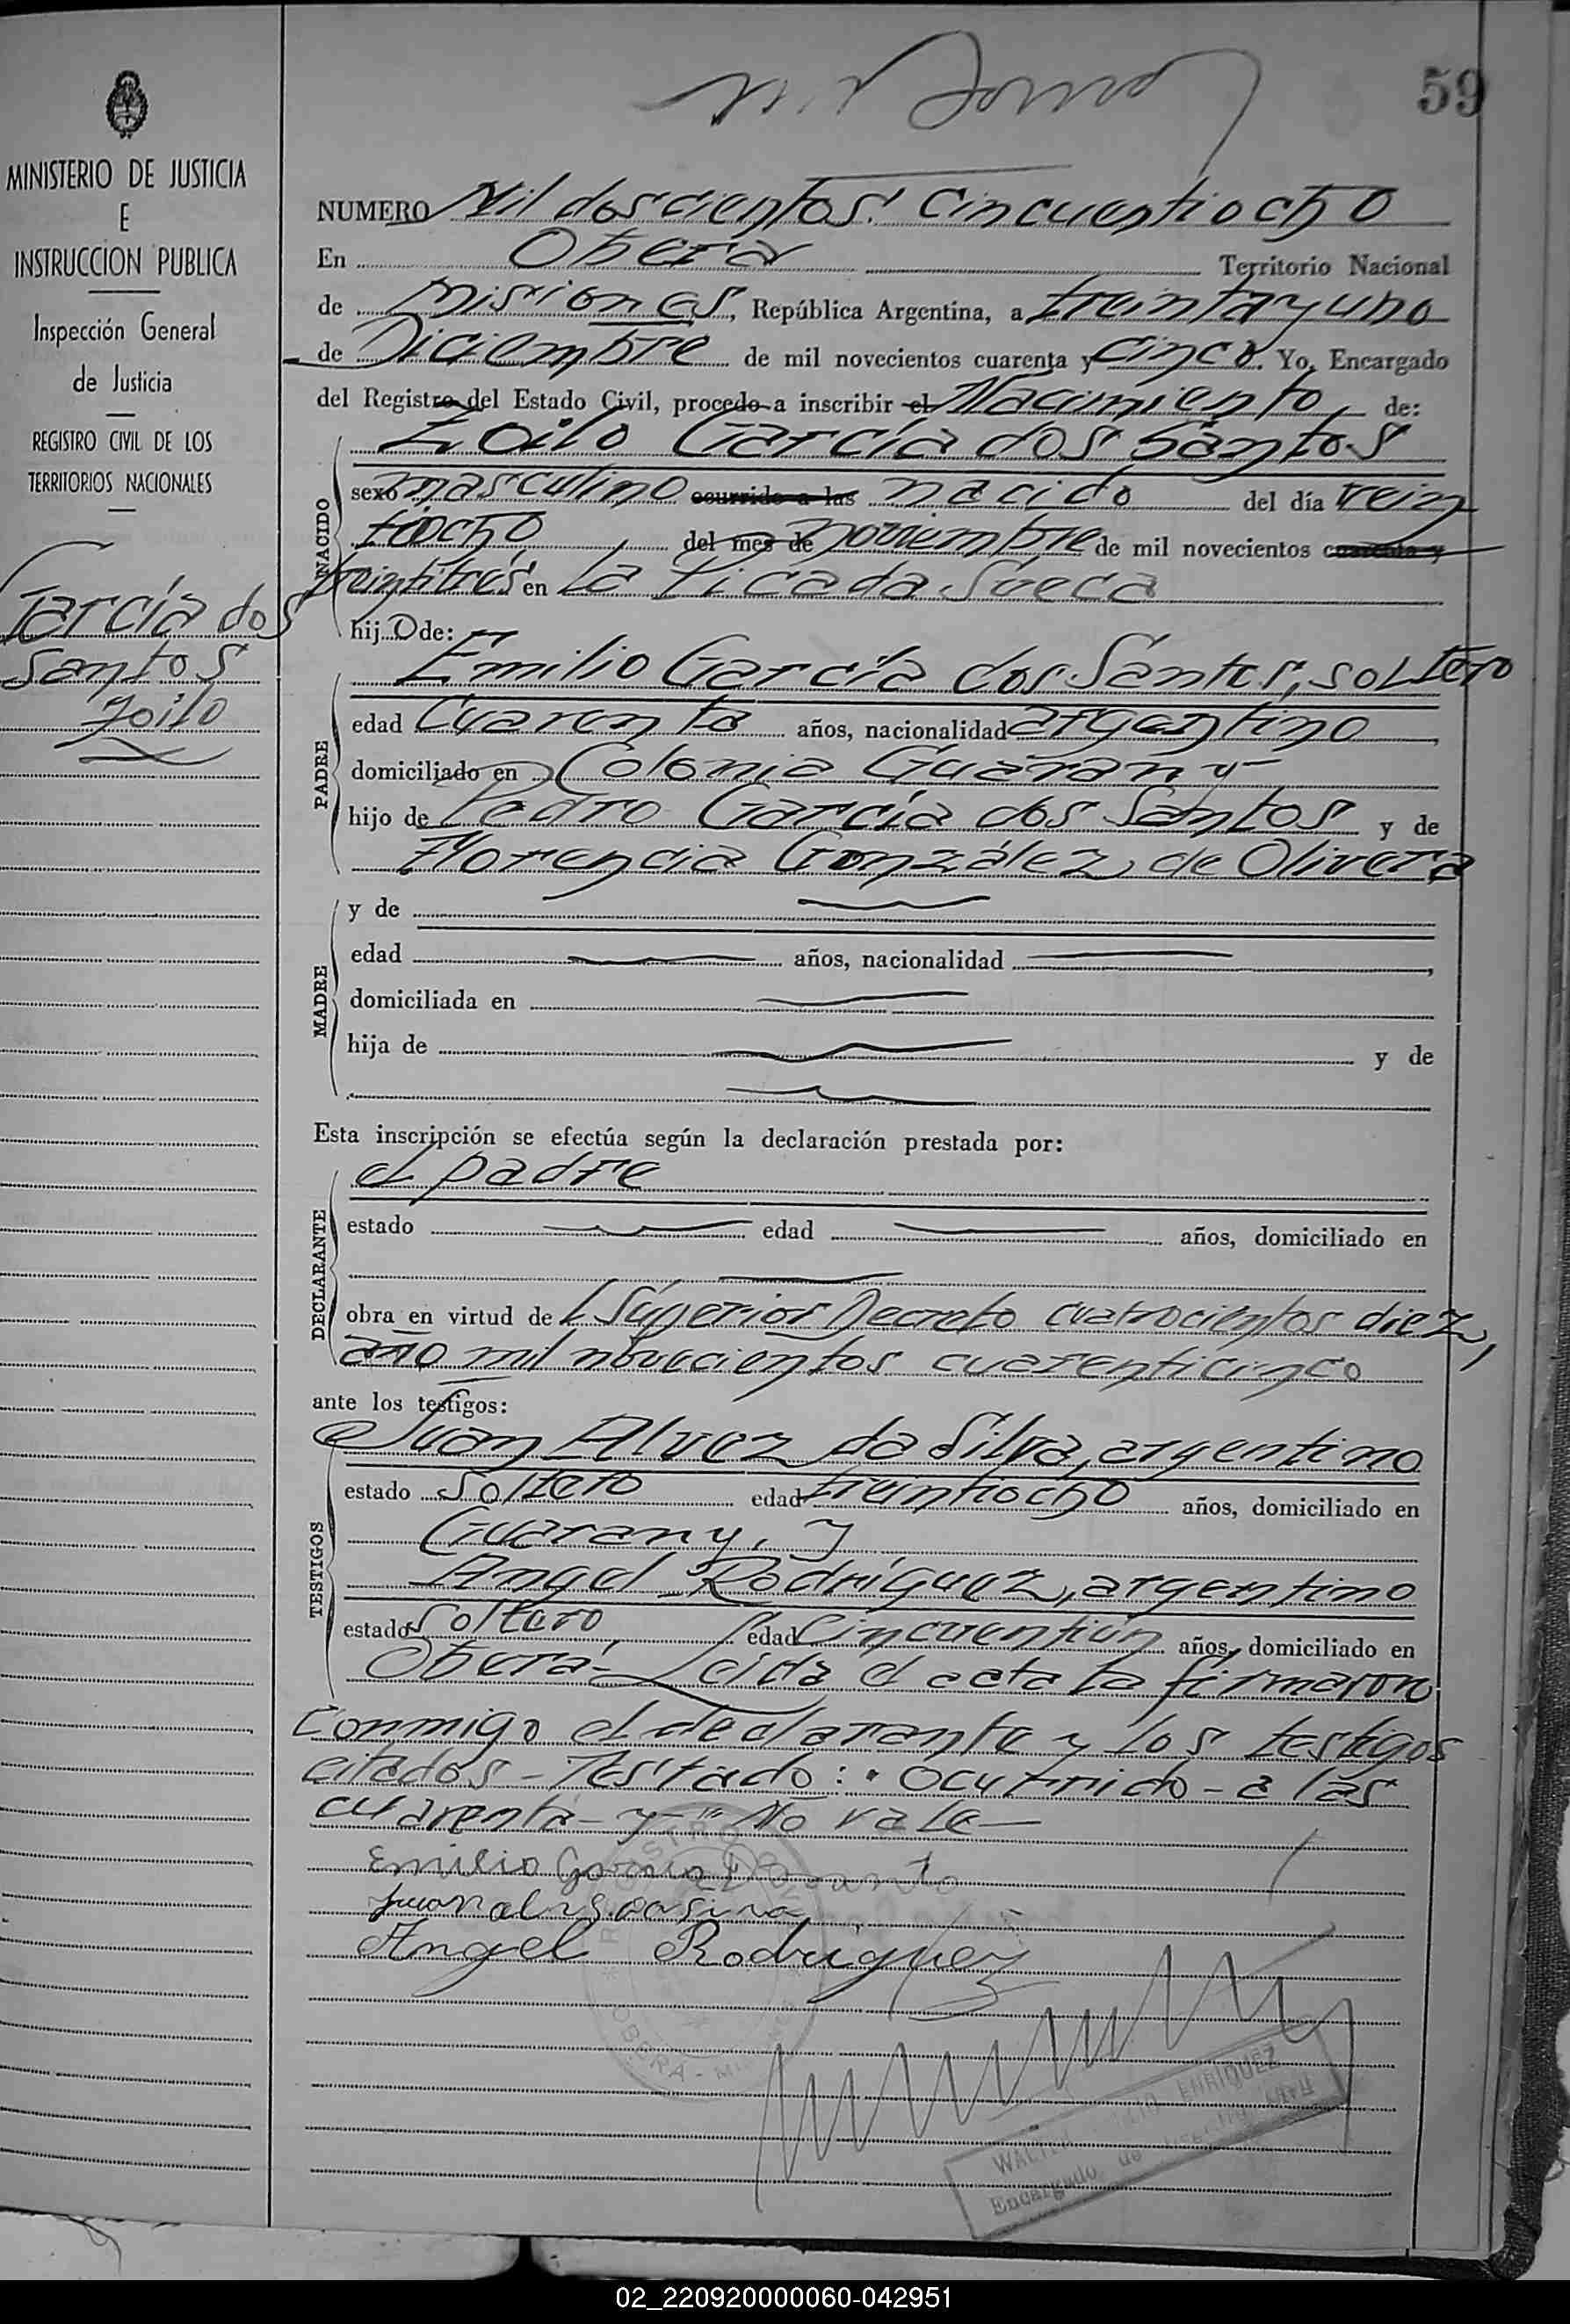 59
MINISTERIO DE JUSTICIA
E
INSTRUCCION PUBLICA
Inspección General
de Justicia
REGISTRO CIVIL DE LOS
TERRITORIOS NACIONALES
García dos
Santos
Zoilo
NUMERO Mil doscientos cincuentiocho
En Oberá Territorio Nacional
de Misiones, República Argentina, a treinta y uno
de Diciembre de mil novecientos cuarenta y cinco. Yo, Encargado
del Registro del Estado Civil, procedo a inscribir el Nacimiento de:
Zoilo García dos Santos
NACIDO
sexo masculino ocurrido a las nacido del día vein
tiocho del mes de noviembre de mil novecientos cuarenta y
veintitrés en La Picada Sueca
hijo de:
Emilio García dos Santos, soltero
PADRE
edad Cuarenta años, nacionalidad argentino,
domiciliado en Colonia Guarany
hijo de Pedro García dos Santos y de
Florencia González de Olivera
MADRE
y de
edad años, nacionalidad ,
domiciliada en
hija de y de
Esta inscripción se efectúa según la declaración prestada por:
el padre
DECLARANTE
estado edad años, domiciliado en
obra en virtud del Superior Decreto cuatrocientos diez,
año mil novecientos cuarenticinco
ante los testigos:
Juan Alvez da Silva, argentino
TESTIGOS
estado Soltero edad treintiocho años, domiciliado en
Guarany, y
Angel Rodríguez, argentino
estado Soltero edad Cincuentiún años, domiciliado en
Oberá- Leída el acta la firmaron
conmigo el declarante y los testigos
citados - Testado: "ocurrido - a las
cuarenta - y" No vale
Emilio
Angel Rodriguez
REGISTRO
OBERA - 
WALTER ENRIQUEZ
Encargado de
02_220920000060-042951